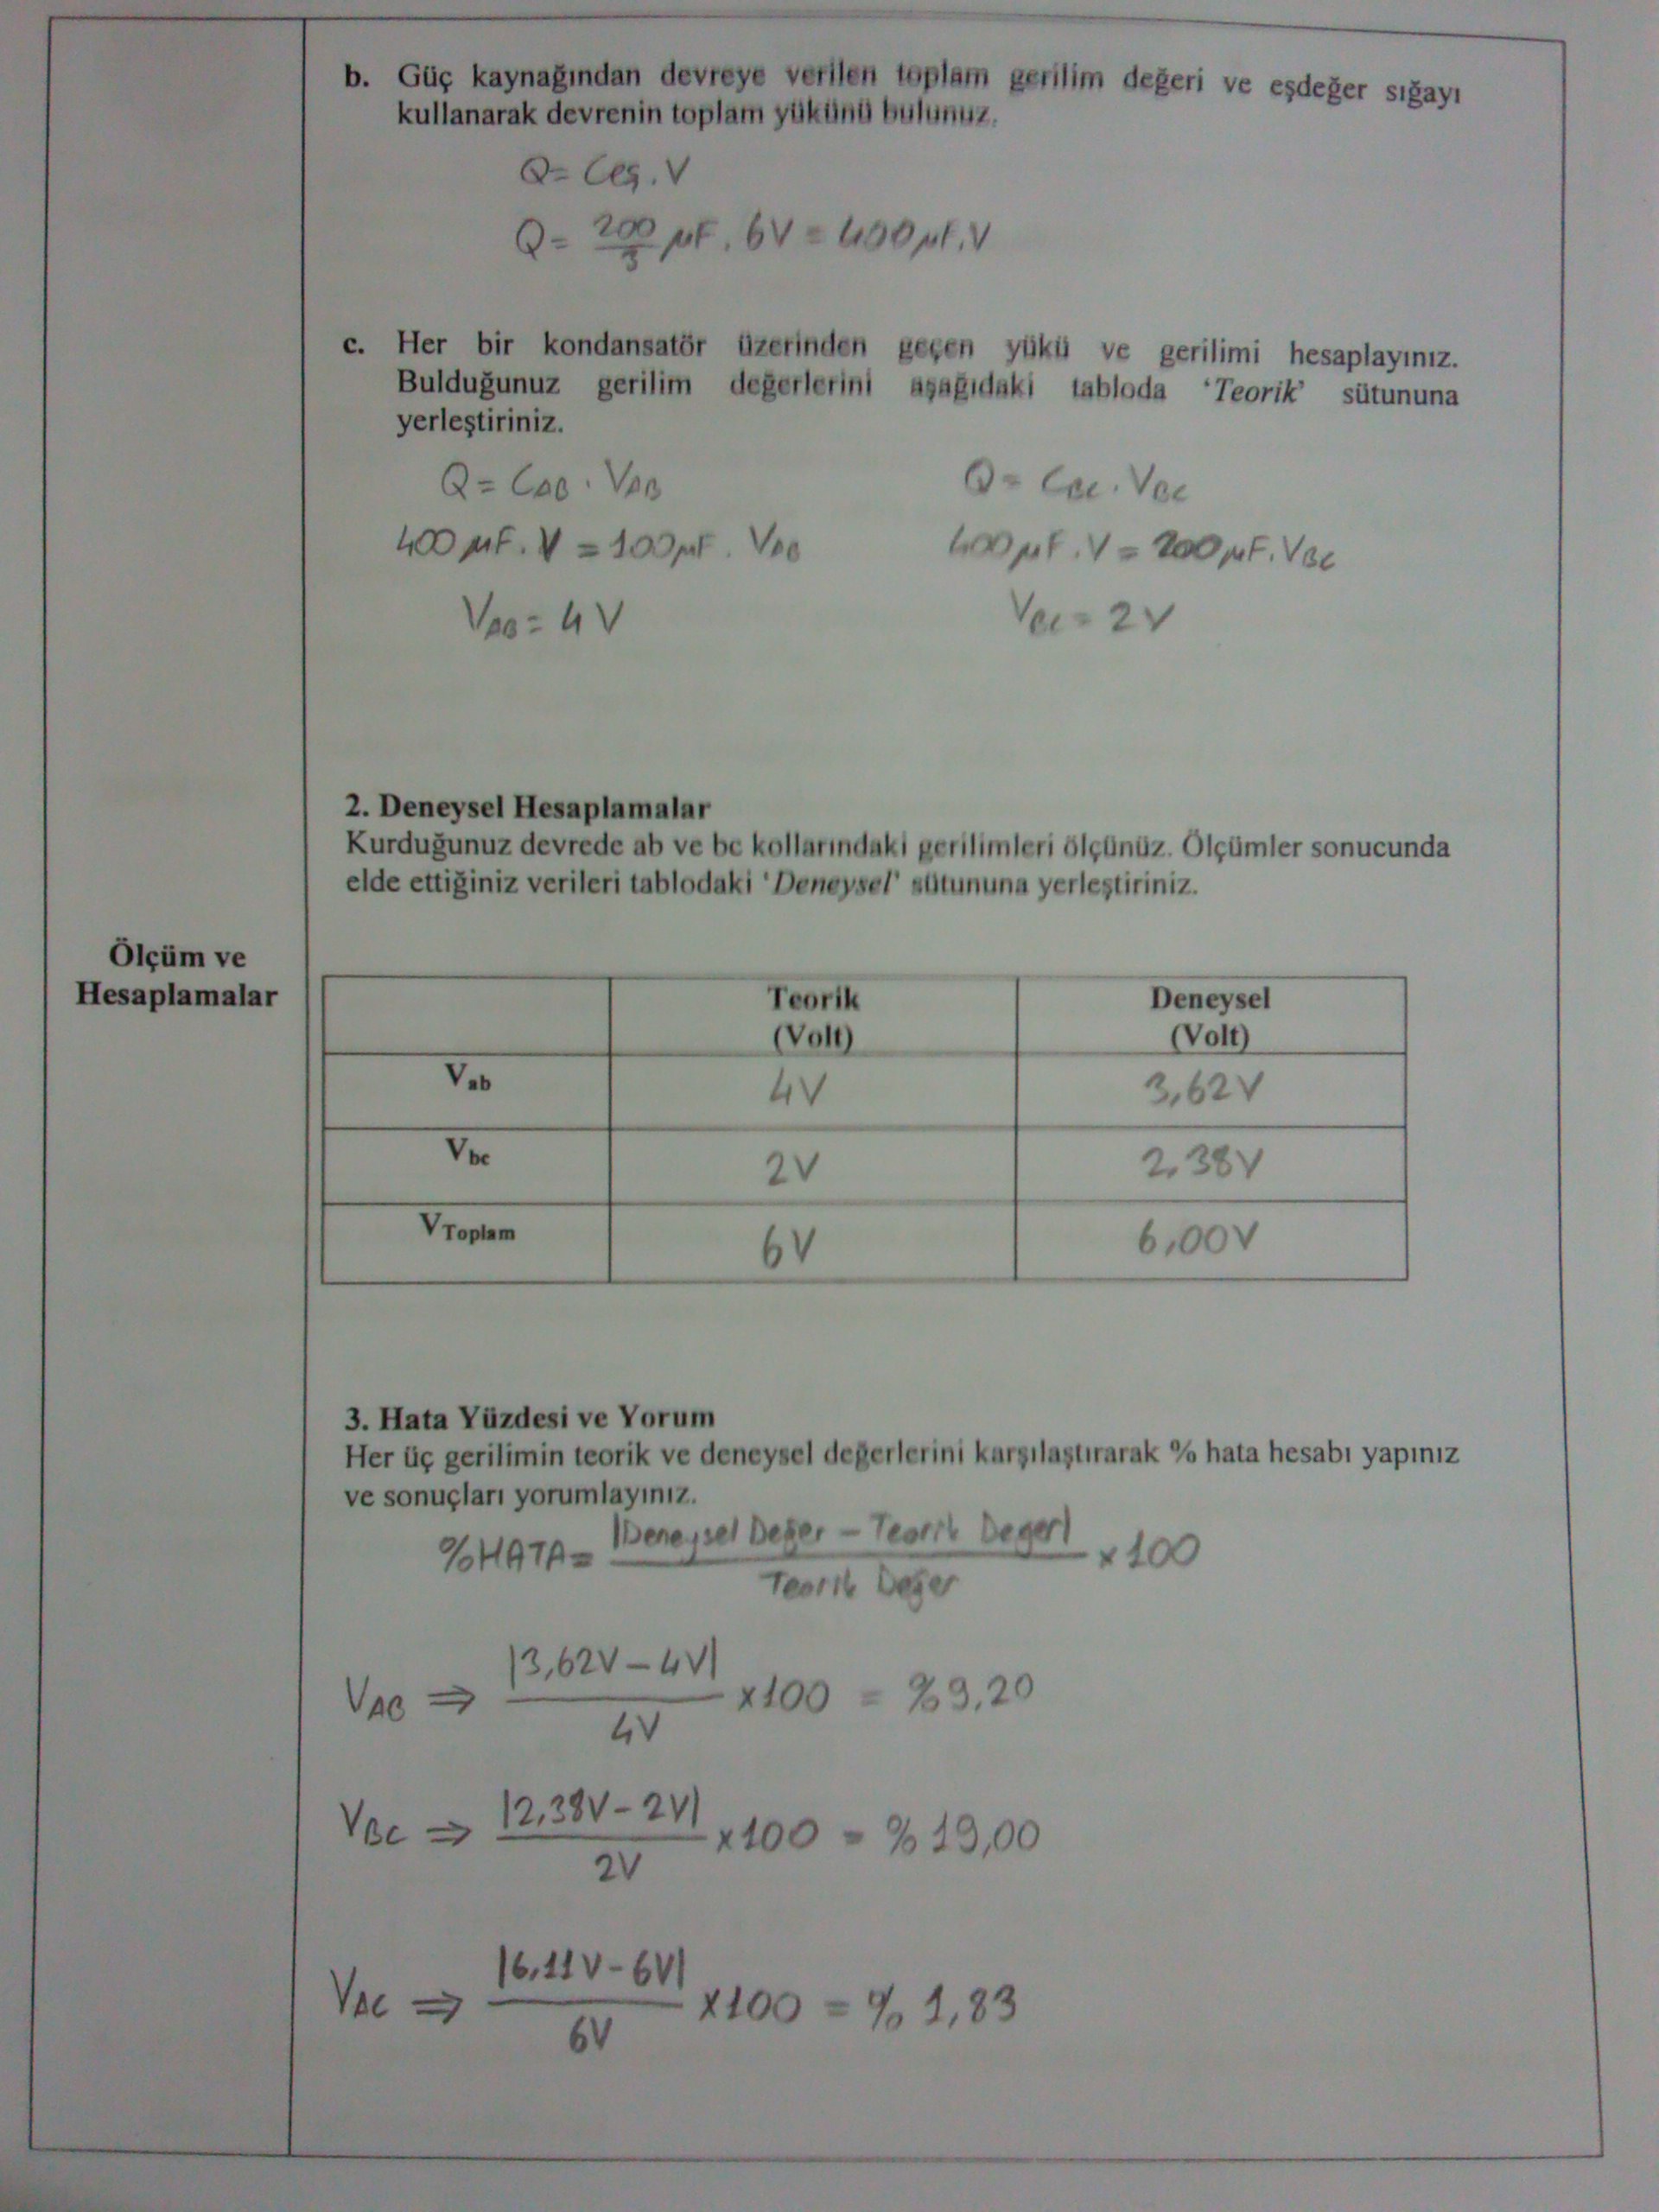 b. Güç kaynağından devreye verilen toplam gerilim değeri ve eşdeğer sığayı
kullanarak devrenin toplam yükünü bulunuz.
Q= Ceş.V
Q= 200/3 µF. 6V = 400µF.V
c. Her bir kondansatör üzerinden geçen yükü ve gerilimi hesaplayınız.
Bulduğunuz gerilim değerlerini aşağıdaki tabloda 'Teorik' sütununa
yerleştiriniz.
Q= CAB. VAB
400µF.V = 100µF. VAB
VAB= 4V
Q= CBC. VBC
400µF.V = 200µF.VBC
VBC= 2V
2. Deneysel Hesaplamalar
Kurduğunuz devrede ab ve bc kollarındaki gerilimleri ölçünüz. Ölçümler sonucunda
elde ettiğiniz verileri tablodaki 'Deneysel' sütununa yerleştiriniz.
Ölçüm ve
Hesaplamalar
Teorik Deneysel
(Volt) (Volt)
Vab 4V 3,62V
Vbc 2V 2,38V
VToplam 6V 6,00V
3. Hata Yüzdesi ve Yorum
Her üç gerilimin teorik ve deneysel değerlerini karşılaştırarak % hata hesabı yapınız
ve sonuçları yorumlayınız.
%HATA= |Deneysel Değer - Teorik Değer| / Teorik Değer x100
VAB ⇒ |3,62V-4V| / 4V x100 = %9,20
VBC ⇒ |2,38V-2V| / 2V x100 = %19,00
VAC ⇒ |6,11V-6V| / 6V x100 = %1,83